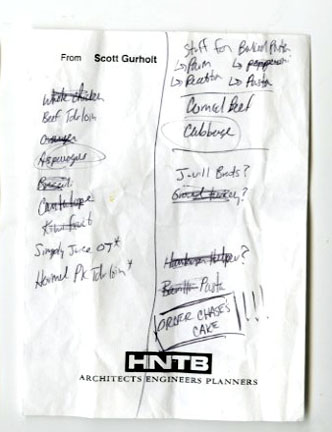 From Scott Gurholt
Whole chicken
Beef Tdrloin
Oranges
Asparagus
Broccoli
Cantelope
Kiwi fruit
Simply Juice OJ*
Hormel Pk Tdrloin*
Stuff for Baked Pasta
↳ Parm ↳ pepperoni
↳ Ricotta ↳ Pasta
Corned Beef
Cabbage
J-ville Brats?
Ground turkey?
Hamburger Helper?
Barilla Pasta
ORDER CHASE'S
CAKE !!!!
HNTB
ARCHITECTS ENGINEERS PLANNERS